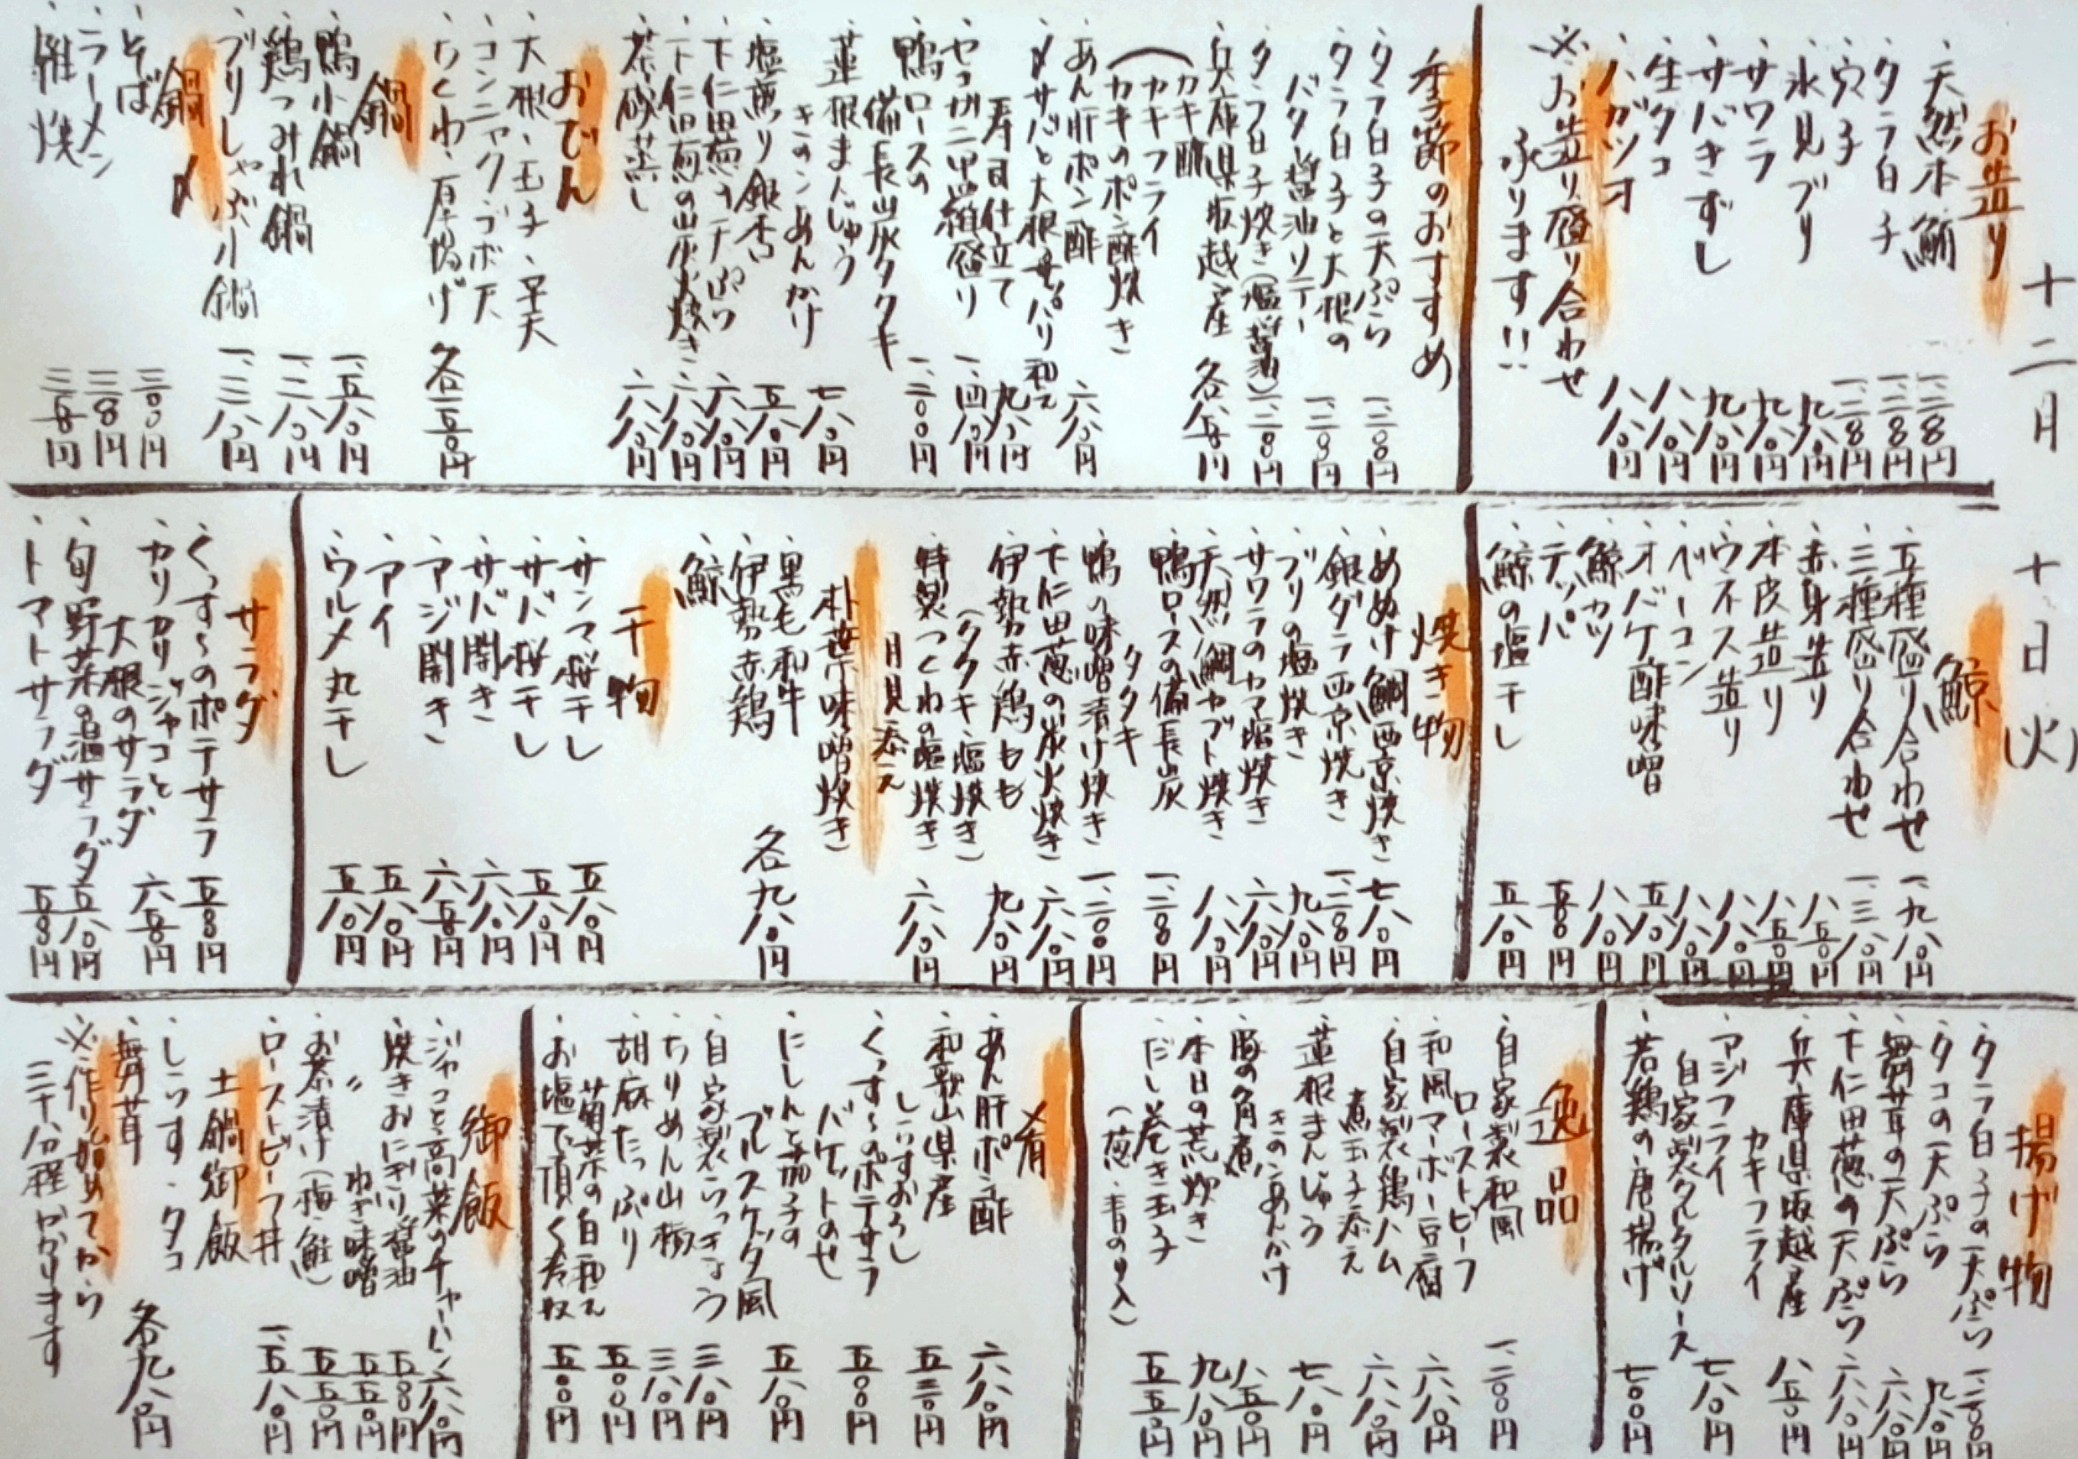 十二月 十日(火)
お造り
・天然本鮪 一、二八〇円
・タラ白子 一、二八〇円
・穴子 一、二八〇円
・氷見ブリ 九八〇円
・サワラ 九八〇円
・サバきずし 九八〇円
・生タコ 八八〇円
・ハガツオ 八八〇円
※お造り盛り合わせ
承ります!!
季節のおすすめ
・タラ白子の天ぷら 一、二〇〇円
・タラ白子と大根の
バター醤油ソテー 一、二〇〇円
・タラ白子焼き(塩・醤油) 一、二〇〇円
・兵庫県坂越産 各八五〇円
カキ酢
カキフライ
カキのポン酢焼き
・あん肝ポン酢 六八〇円
・〆サバと大根サッパリ和え
寿司仕立て 九八〇円
・セコガニ甲羅盛り 一、四八〇円
・鴨ロースの
備長炭タタキ 一、二〇〇円
・蓮根まんじゅう
きのこあんかけ 七八〇円
・塩煎り銀杏 五八〇円
・下仁田葱の天ぷら 六八〇円
・下仁田葱の炭火焼き 六八〇円
・茶碗蒸し 六八〇円
おでん
・大根・玉子・平天
・コンニャク・ゴボ天
・ちくわ・厚揚げ 各二五〇円
鍋
・鴨小鍋 一、五八〇円
・鶏つみれ鍋 一、二八〇円
・ブリしゃぶ小鍋 一、三八〇円
鍋〆
・そば 三〇〇円
・ラーメン 三八〇円
・雑炊 三五〇円
鯨
・五種盛り合わせ 一、九八〇円
・三種盛り合わせ 一、三八〇円
・赤身造り 八五〇円
・本皮造り 八五〇円
・ウネス造り 八八〇円
・ベーコン 八八〇円
・オバケ酢味噌 五八〇円
・鯨カツ 八八〇円
・テッパ 五八〇円
・鯨の塩干し 五八〇円
焼き物
・めぬけ鯛西京焼き 七八〇円
・銀ダラ西京焼き 一、二八〇円
・ブリの塩焼き 九八〇円
・サワラのカマ塩焼き 六八〇円
・天然鯛カブト焼き 八八〇円
・鴨ロースの備長炭
タタキ 一、二八〇円
・鴨の味噌漬け焼き 一、二〇〇円
・下仁田葱の炭火焼き 六八〇円
・伊勢赤鶏もも
(タタキ・塩焼き) 九八〇円
・特製つくねの塩焼き
月見添え 六八〇円
朴葉味噌焼き
・黒毛和牛
・伊勢赤鶏
・鯨 各九八〇円
干物
・サンマ桜干し 五八〇円
・サバ桜干し 五八〇円
・サバ開き 六八〇円
・アジ開き 六五〇円
・アイ 五八〇円
・ウルメ丸干し 五八〇円
サラダ
・くっす〜のポテサラ 五五〇円
・カリカリジャコと
大根のサラダ 六五〇円
・旬野菜の温サラダ 五八〇円
・トマトサラダ 五五〇円
揚げ物
・タラ白子の天ぷら 一、二〇〇円
・タコの天ぷら 九八〇円
・舞茸の天ぷら 六八〇円
・下仁田葱の天ぷら 六八〇円
・兵庫県坂越産
カキフライ 八五〇円
・アジフライ
自家製タルタルソース 七八〇円
・若鶏の唐揚げ 七〇〇円
逸品
・自家製和風
ローストビーフ 一、二〇〇円
・和風マーボー豆腐 六八〇円
・自家製鶏ハム
煮玉子添え 六八〇円
・蓮根まんじゅう
きのこあんかけ 七八〇円
・豚の角煮 八五〇円
・本日の荒炊き 九八〇円
・だし巻き玉子
(葱・青のり入) 五五〇円
肴
・あん肝ポン酢 六八〇円
・和歌山県産
しらすおろし 五三〇円
・くっす〜のポテサラ
バゲットのせ 五〇〇円
・にしんと茄子の
ブルスケッタ風 五八〇円
・自家製らっきょう 三八〇円
・ちりめん山椒 三八〇円
・胡麻たっぷり
菊菜の白和え 五〇〇円
・お塩で頂く冷奴 五〇〇円
御飯
・ジャコと高菜のチャーハン 六八〇円
・焼きおにぎり醤油 五〇〇円
・〃 ねぎ味噌 五五〇円
・お茶漬け(梅・鮭) 五五〇円
・ローストビーフ丼 一、五八〇円
土鍋御飯
・しらす・タコ
・舞茸 各九八〇円
※作り始めてから
三十分程かかります